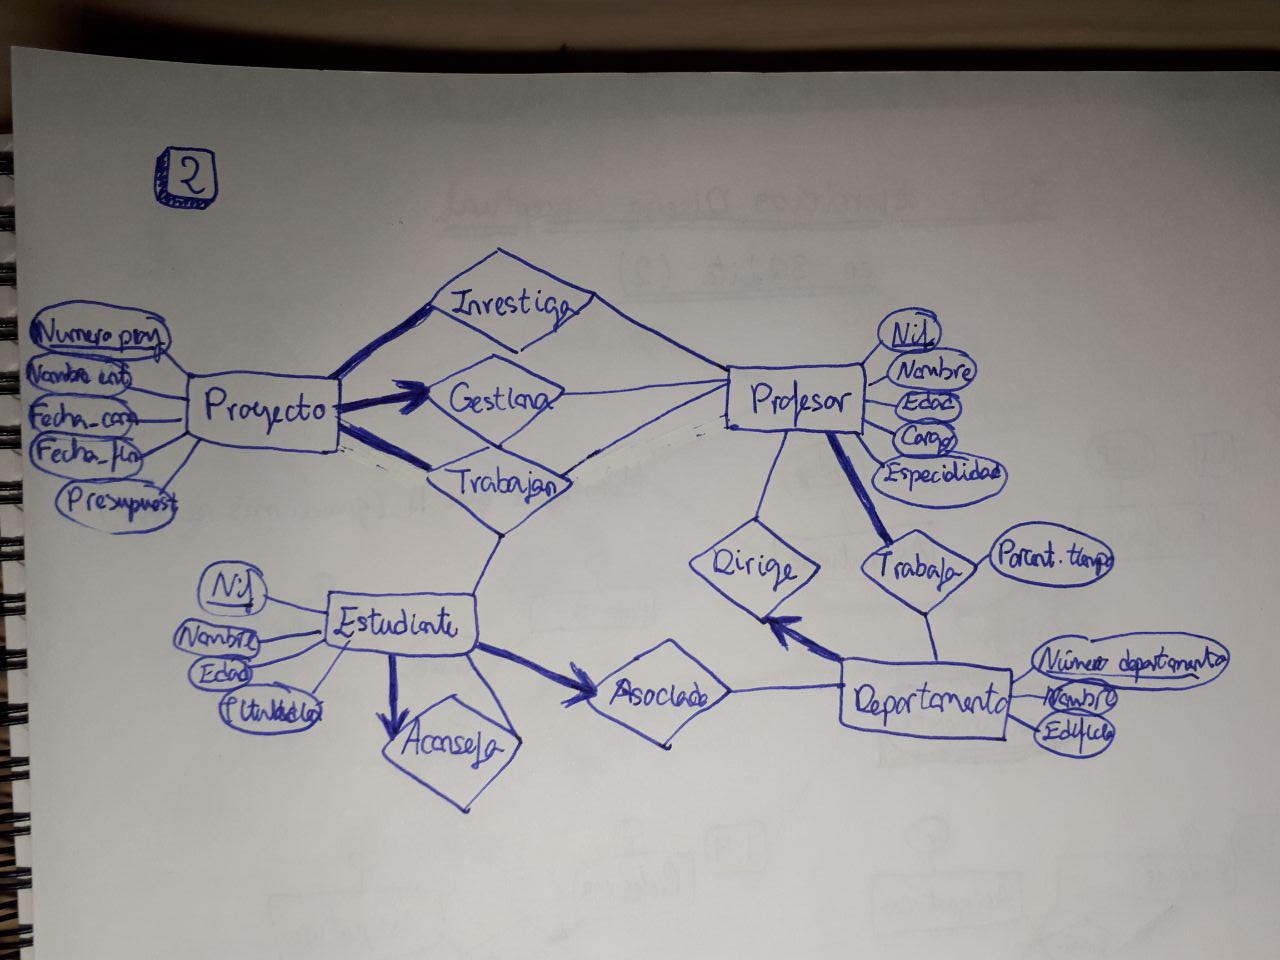 2
Investiga
Numero proy
Nombre ent
Fecha_com
Fecha_fin
Presupuest
Proyecto
Gestiona
Trabajan
Profesor
Nif
Nombre
Edad
Cargo
Especialidad
Dirige
Trabaja
Porcent. tiempo
Nif
Nombre
Edad
Estudiante
Aconseja
Asociado
Departamento
Número departamento
Nombre
Edificio